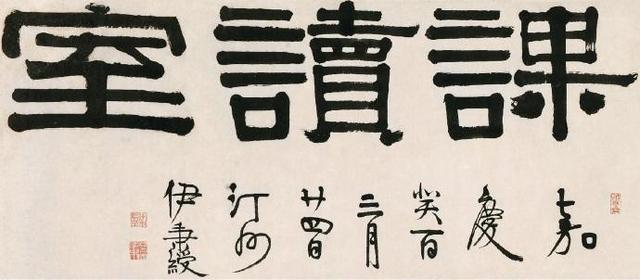 課讀室
嘉慶癸酉三月廿四日汀州伊秉綬